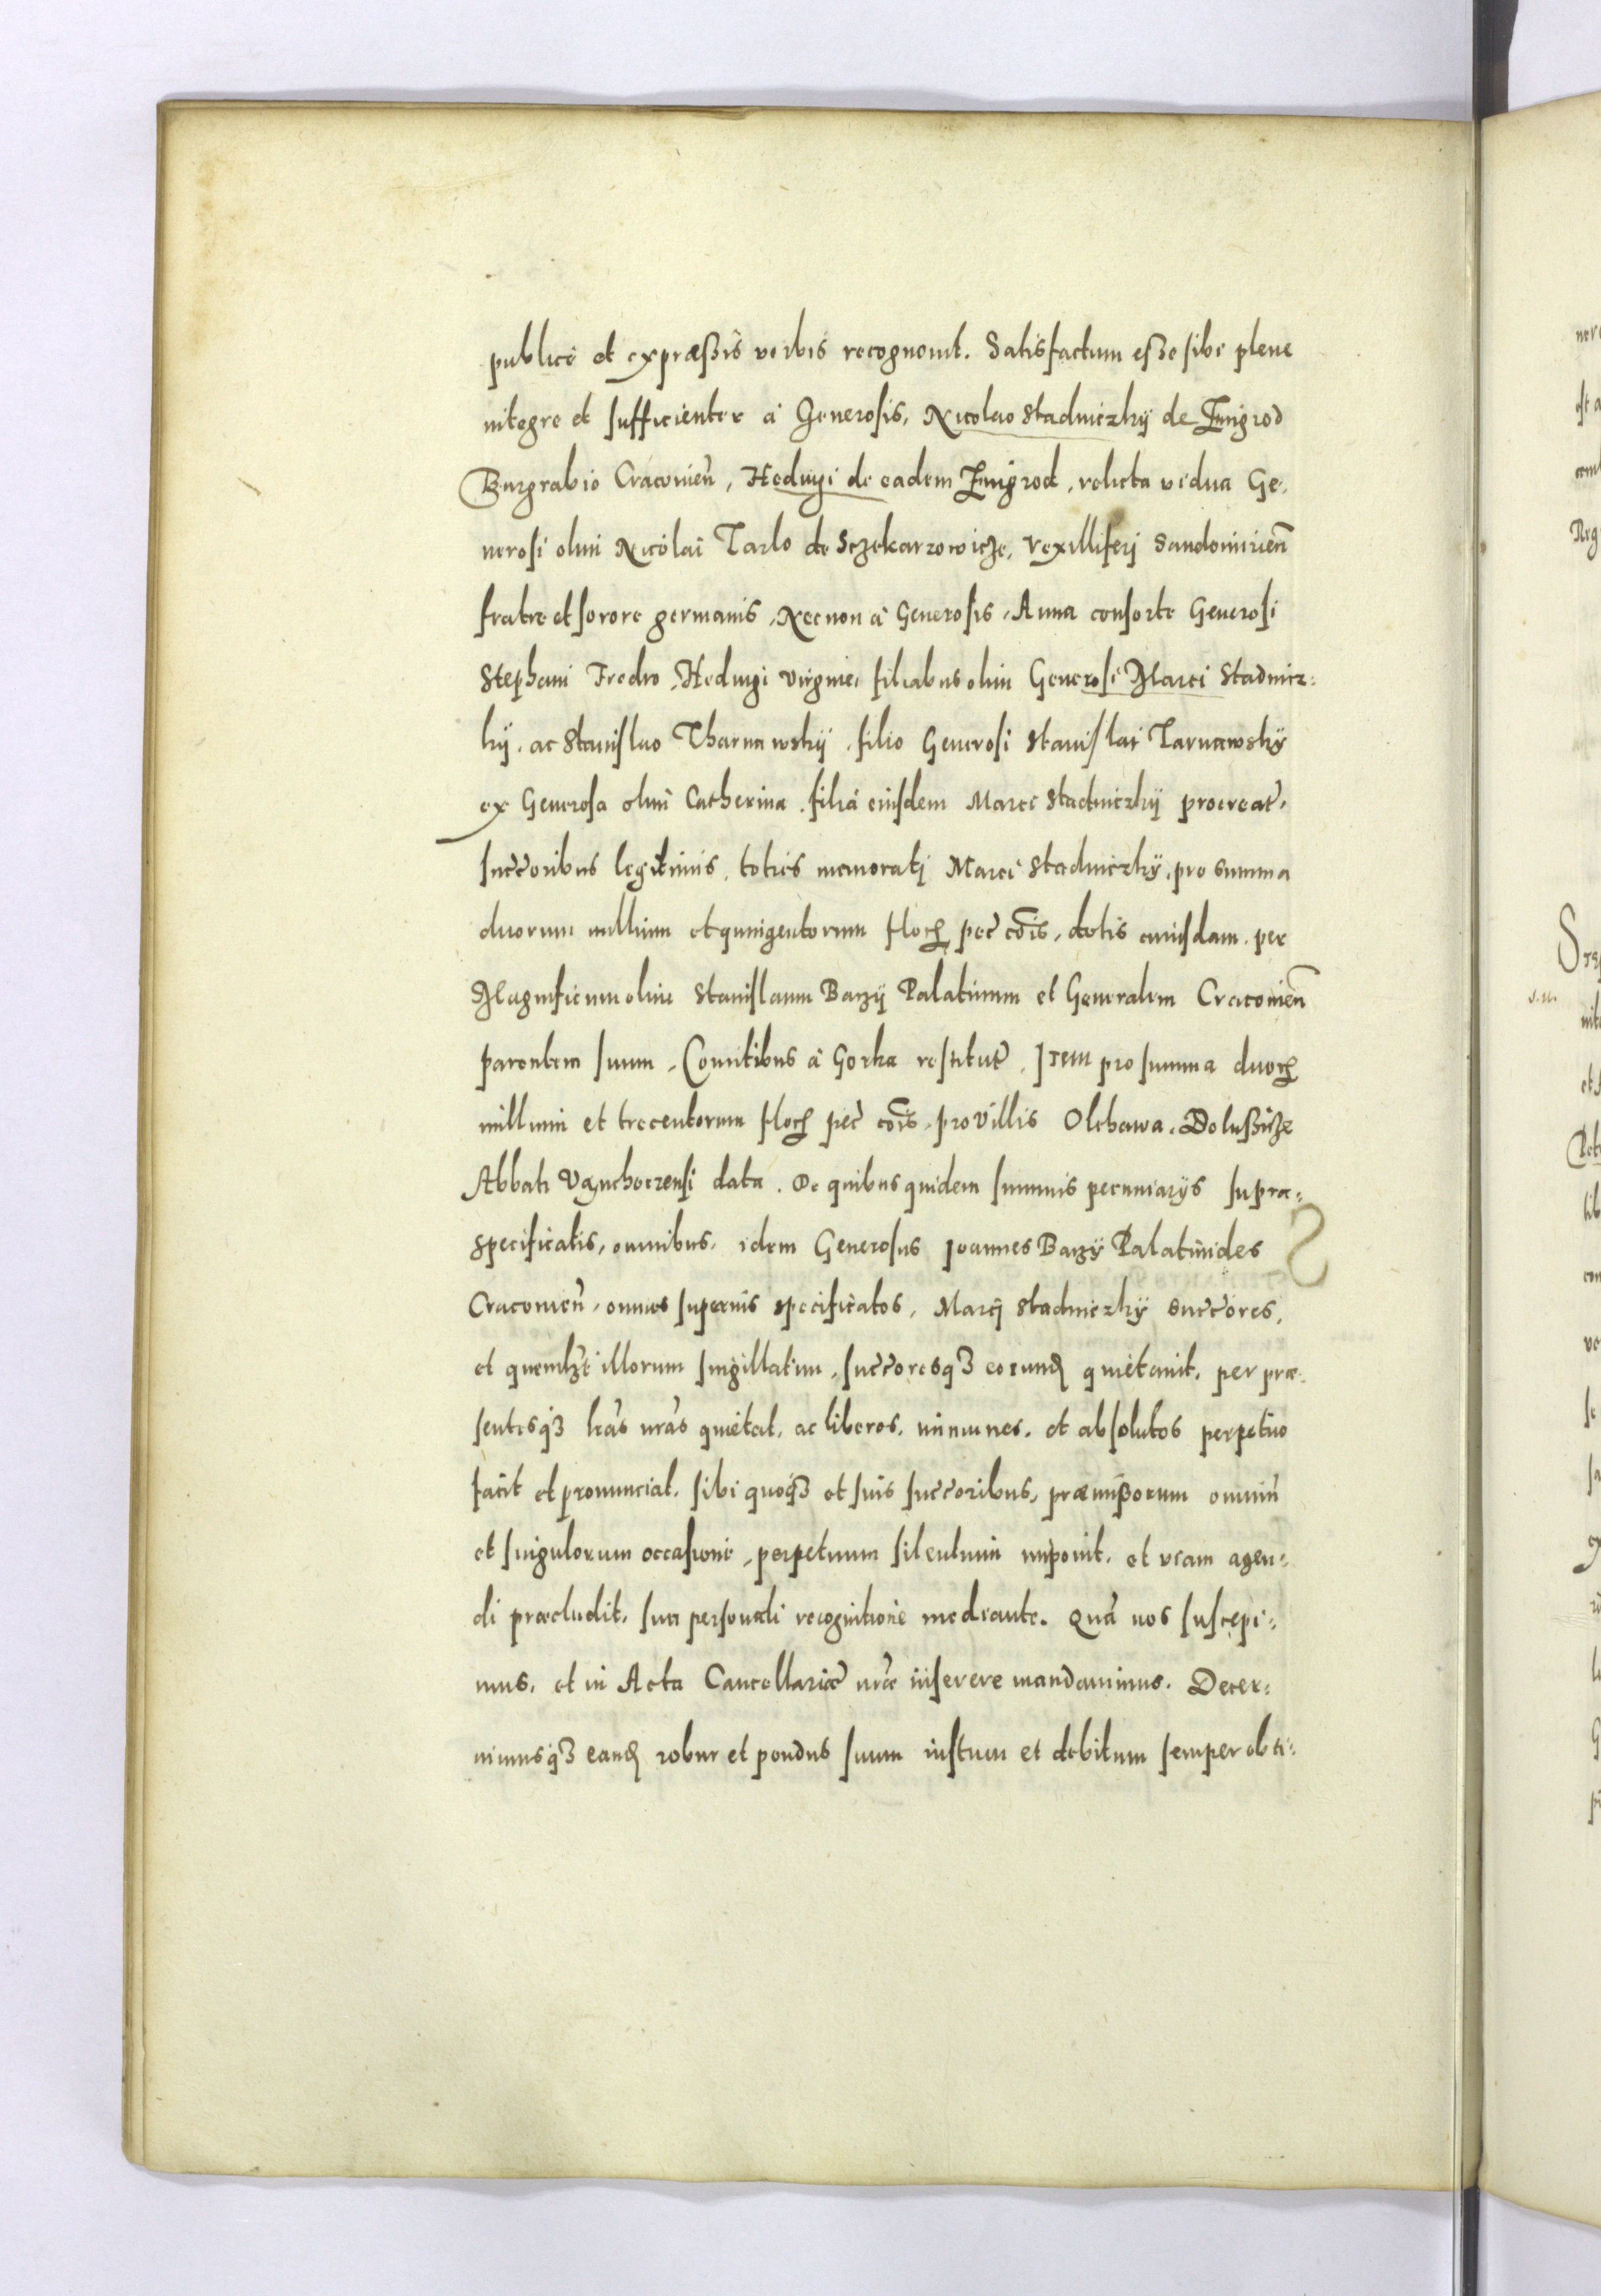 publicè et expræßis verbis recognouit. Satisfactum eße sibi plene
integre et sufficienter à Generosis, Nicolao Stadniczky de Zmigrod
Burgrabio Cracovien̄, Heduigi de eadem Zmigrod, relicta vidua Ge,
nerosi olim Nicolai Tarlo de Sczekarzowicze, Vexilliferj Sandomirien̄
fratre et sorore germanis, Necnon à Generosis, Anna consorte Generosi
Stephani Fredro, Heduigi virgine, filiabus olim Generosi Marci Stadnicz:
ky, ac Stanislao Tharnawsky, filio Generosi Stanislai Tarnawsky
ex Generosa olim Catherina, filia eiusdem Marci Stadniczky procreat̄,
succ̄oribus legitimis, toties memoratj Marci Stadniczky, pro summa
duorum millium et quingentorum floꝝ pec̄ cōis, dotis cuiusdam, per
Magnificum olim Stanislaum Barzy Palatinum et Generalem Cracouien̄
parentem suum, Comitibus à Gorka restitut̄, Item pro summa duoꝝ
millium et trecentorum floꝝ pec̄ cōis, pro villis Olchawa, Dolußicze
Abbati Vanchocensi data. De quibus quidem summis pecuniarijs supra:
specificatis, omnibus, idem Generosus Joannes Barzy Palatinides
Cracouien̄, omnes superius specificatos, Marcj Stadniczky succ̄ores,
et quemlȝt illorum singillatim, succ̄oresqȝ eorunđ quietauit, per præ:
sentesqȝ lrās nrās quietat, ac liberos, immunes, et absolutos perpetuo
facit et pronunciat, sibi quoqȝ et suis succ̄oribus, præmißorum omniū
et singulorum occasione, perpetuum silentium imponit, et viam agen:
di præcludit, sua personali recognitione mediante. Quā nos suscepi:
mus, et in Acta Cancellariæ nrē inserere mandauimus. Decer:
nimusqȝ eanđ robur et pondus suum iustum et debitum semper obti: